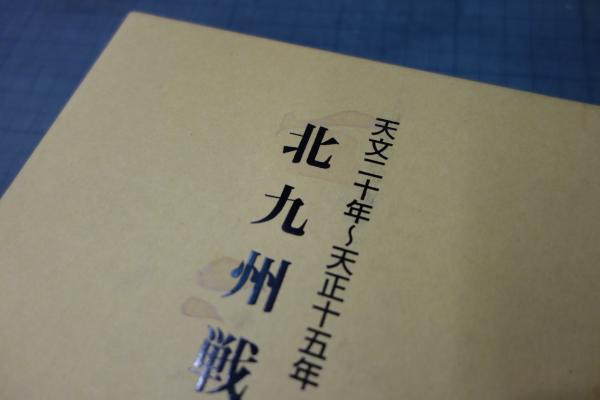 天文二十年〜天正十五年
北九州戦